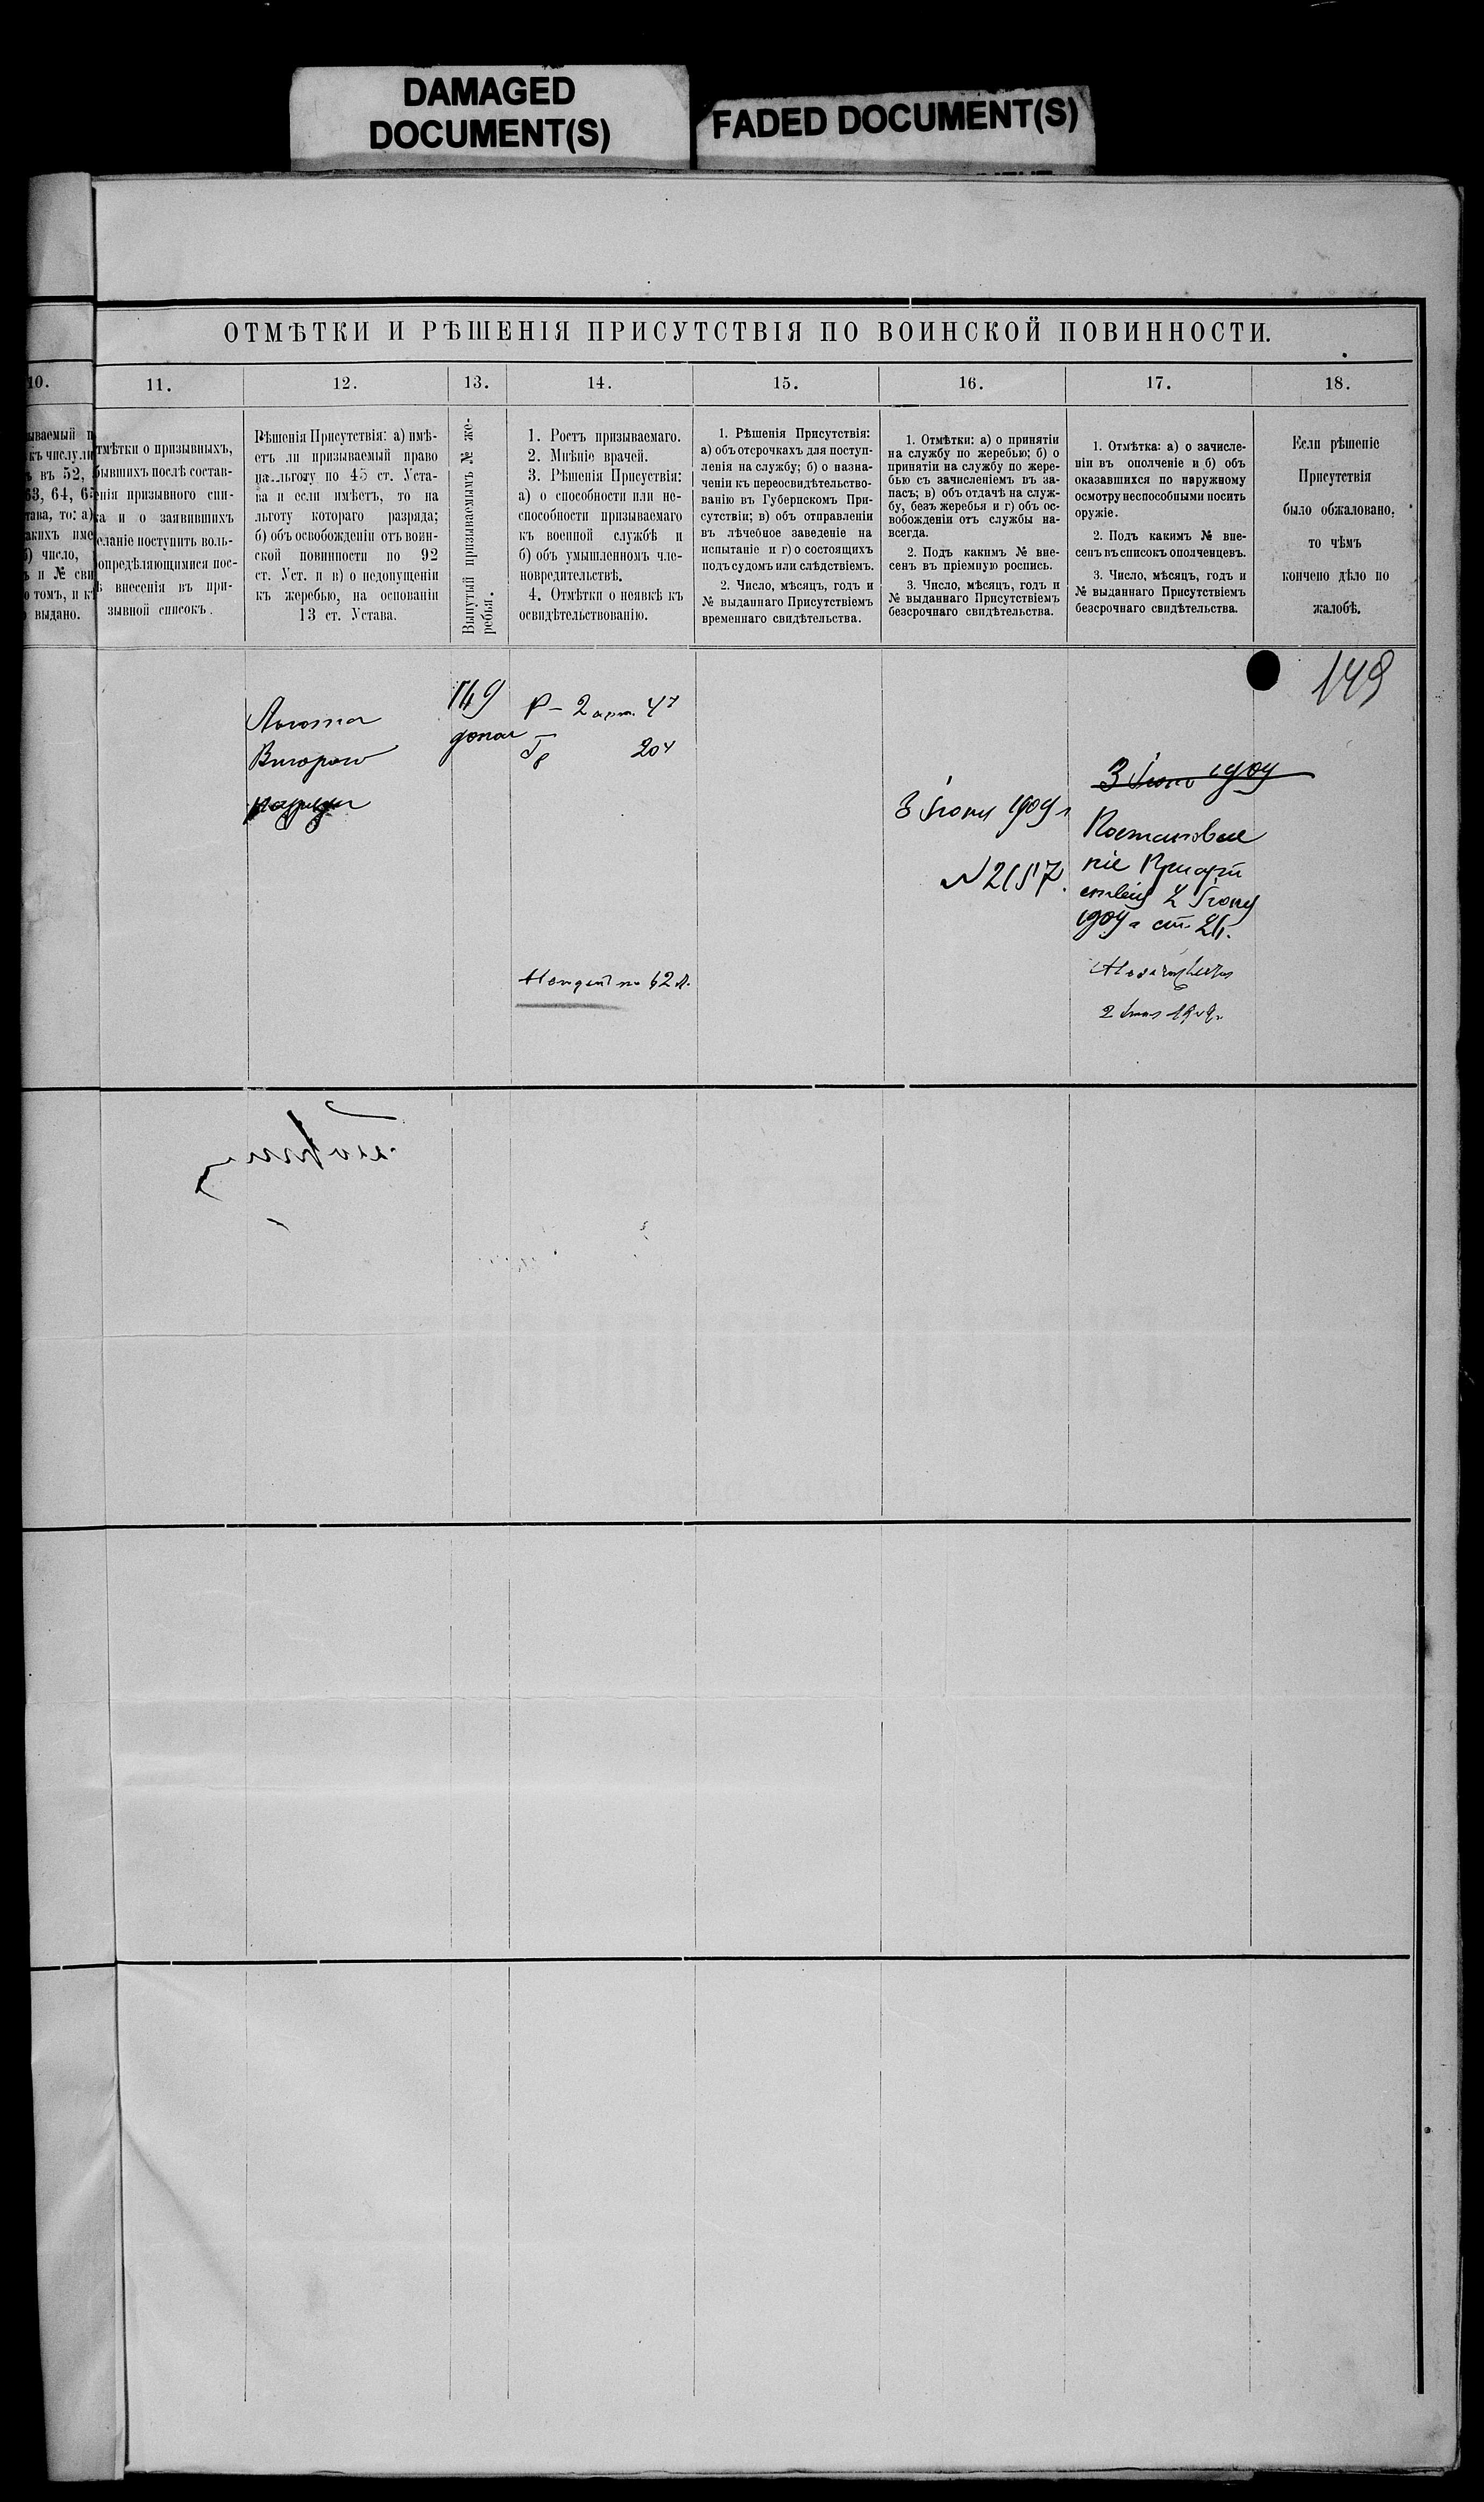 DAMAGED
DOCUMENT(S)
FADED DOCUMENT(S)
ОТМѢТКИ И РѢШЕНІЯ ПРИСУТСТВІЯ ПО ВОИНСКОЙ ПОВИННОСТИ.
10.
11.
12.
13.
14.
15.
16.
17.
18.
къ числу
въ 52,
63, 64,
то: а)
число,
и №
о томъ, и
выдано.
о призывныхъ,
послѣ состав-
призывного спи-
и о заявившихъ
поступить воль-
внесенія въ при-
зывной списокъ.
Рѣшенія Присутствія: а) имѣ-
етъ ли призываемый право
на льготу по 45 ст. Уста-
ва и если имѣетъ, то на
льготу котораго разряда;
б) объ освобожденіи отъ воин-
ской повинности по 92
ст. Уст. и в) о недопущеніи
къ жеребью, на основаніи
13 ст. Устава.
Вынутый призываемымъ № же-
ребья.
1. Ростъ призываемаго.
2. Мнѣніе врачей.
3. Рѣшенія Присуствія:
а) о способности или не-
способности призываемаго
къ военной службѣ и
б) объ умышленномъ чле-
новредительствѣ.
4. Отмѣтки о неявкѣ къ
освидѣтельствованію.
1. Рѣшенія Присутствія:
а) объ отсрочкахъ для поступ-
ленія на службу; б) о назна-
ченіи къ переосвидѣтельство-
ванію въ Губернскомъ При-
сутствіи; в) объ отправленіи
въ лѣчебное заведеніе на
испытаніе и г) о состоящихъ
подъ судомъ или слѣдствіемъ.
2. Число, мѣсяцъ, годъ и
№ выданнаго Присутствіемъ
временнаго свидѣтельства.
1. Отмѣтки: а) о принятіи
на службу по жеребью; б) о
принятіи на службу по жере-
бью съ зачисленіемъ въ за-
пасъ; в) объ отдачѣ на служ-
бу, безъ жеребья и г) объ ос-
вобожденіи отъ службы на-
всегда.
2. Подъ какимъ № вне-
сенъ въ пріемную роспись.
3. Число, мѣсяцъ, годъ и
№ выданнаго Присутствіемъ
безсрочнаго свидѣтельства.
1. Отмѣтка: а) о зачисле-
ніи въ ополченіе и б) объ
оказавшихся по наружному
осмотру неспособными носить
оружіе.
2. Подъ какимъ № вне-
сенъ въ списокъ ополченцевъ.
3. Число, мѣсяцъ, годъ и
№ выданнаго Присутствіемъ
безсрочнаго свидѣтельства.
Если рѣшеніе
Присутствія
было обжаловано,
то чѣмъ
кончено дѣло по
жалобѣ.
149
Льгота
Второго
разряда
149
Р - 2 арш. 4
Гр 20
3 Іюня 1909 г
№ 2157.
3 Іюня 1909
Постановле
ніе Присут
ствія 2 Іюня
1909 г ст.
по 62